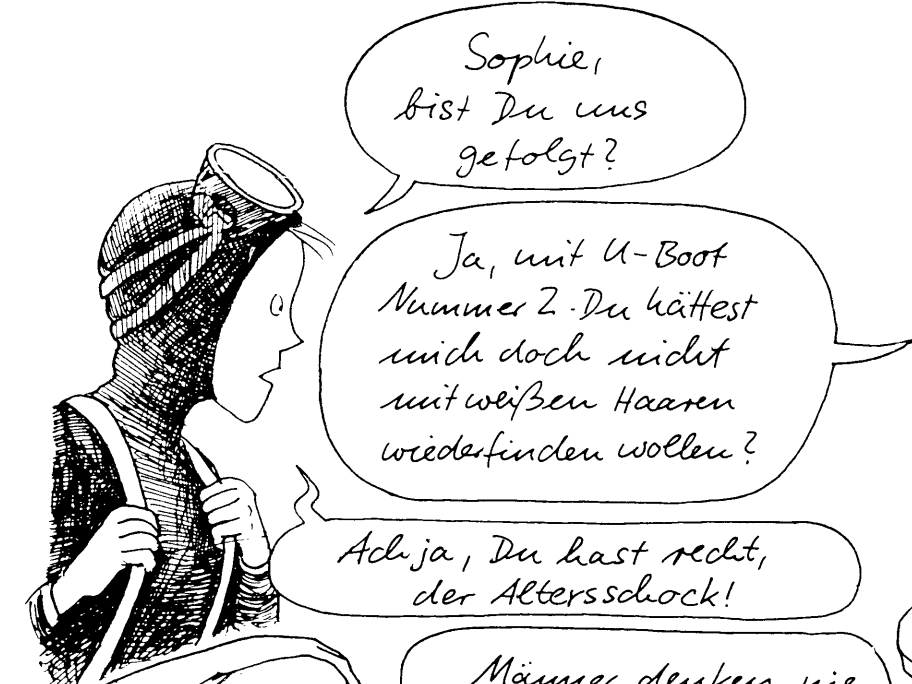 Sophie,
bist Du uns
gefolgt?
Ja, mit U-Boot
Nummer 2. Du hättest
mich doch nicht
mit weißen Haaren
wiederfinden wollen?
Ach ja, Du hast recht,
der Altersschock!
Männer denken nie